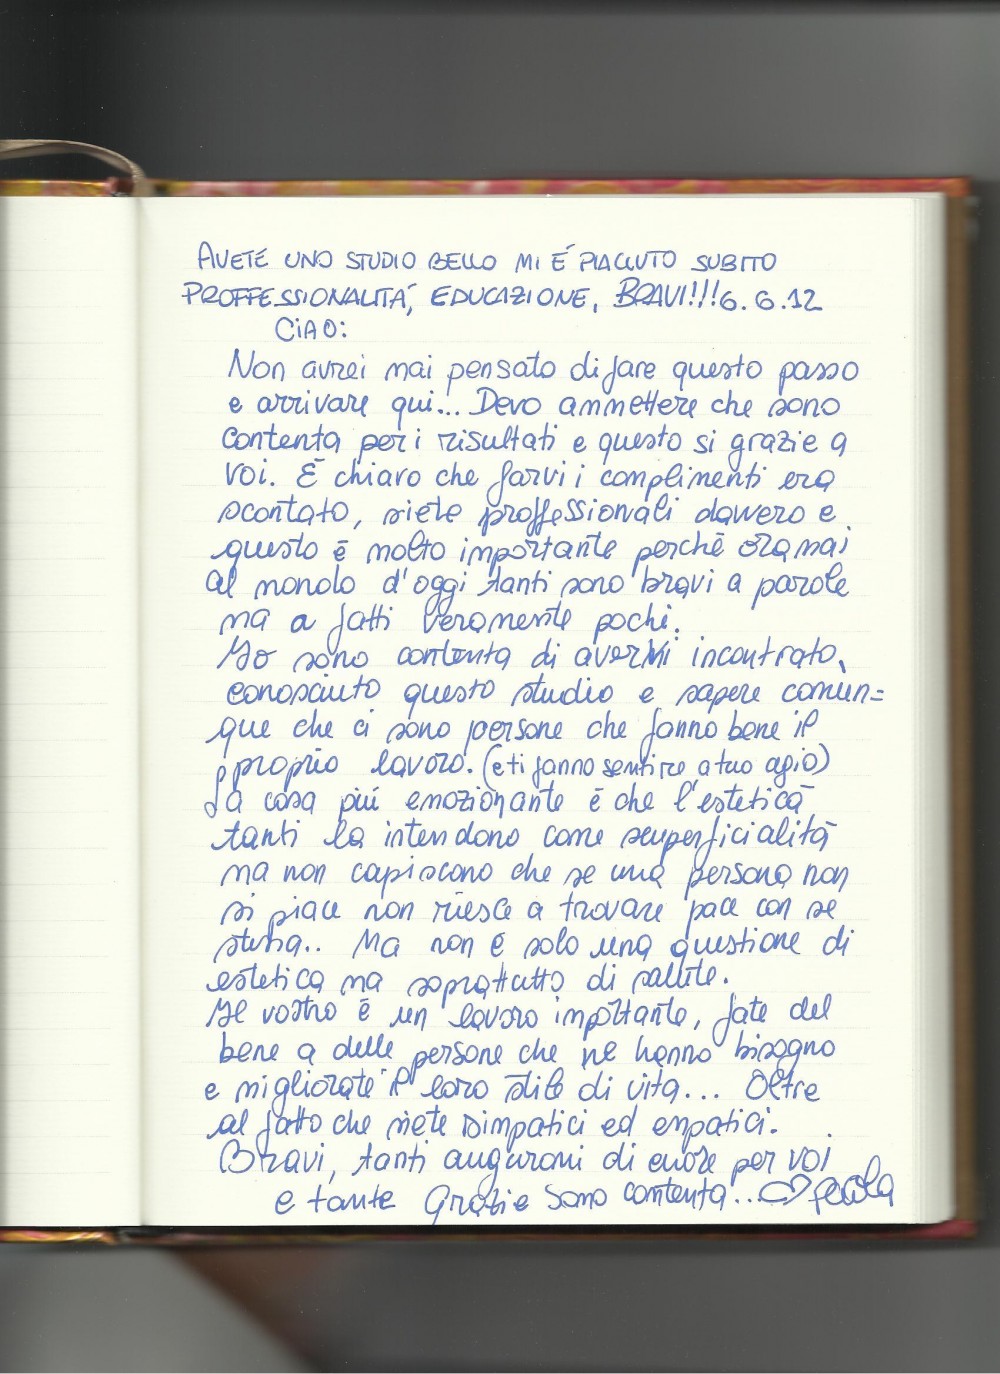 AVETE UNO STUDIO BELLO MI É PIACIUTO SUBITO
PROFFESSIONALITÁ, EDUCAZIONE, BRAVI!!! 6.6.12
CIAO:
Non avrei mai pensato di fare questo passo
e arrivare qui... Devo ammettere che sono
contenta per i risultati e questo si grazie a
voi. É chiaro che farvi i complimenti era
scontato, siete proffessionali davvero e
questo é molto importante perché oramai
al mondo d'oggi tanti sono bravi a parole
ma a fatti veramente pochi.
Io sono contenta di avervi incontrato,
conosciuto questo studio e sapere comun=
que che ci sono persone che fanno bene il
proprio lavoro. (e ti fanno sentire a tuo agio)
La cosa piú emozionante é che l'estetica
tanti la intendono come superficialitá
ma non capiscono che se una persona non
si piace non riesce a trovare pace con se
stessa.. Ma non é solo una questione di
estetica ma soprattutto di salute.
Il vostro é un lavoro importante, fate del
bene a delle persone che ne hanno bisogno
e migliorate il loro stile di vita... Oltre
al fatto che siete simpatici ed empatici.
Bravi, tanti auguroni di cuore per voi
e tante Grazie sono contenta...